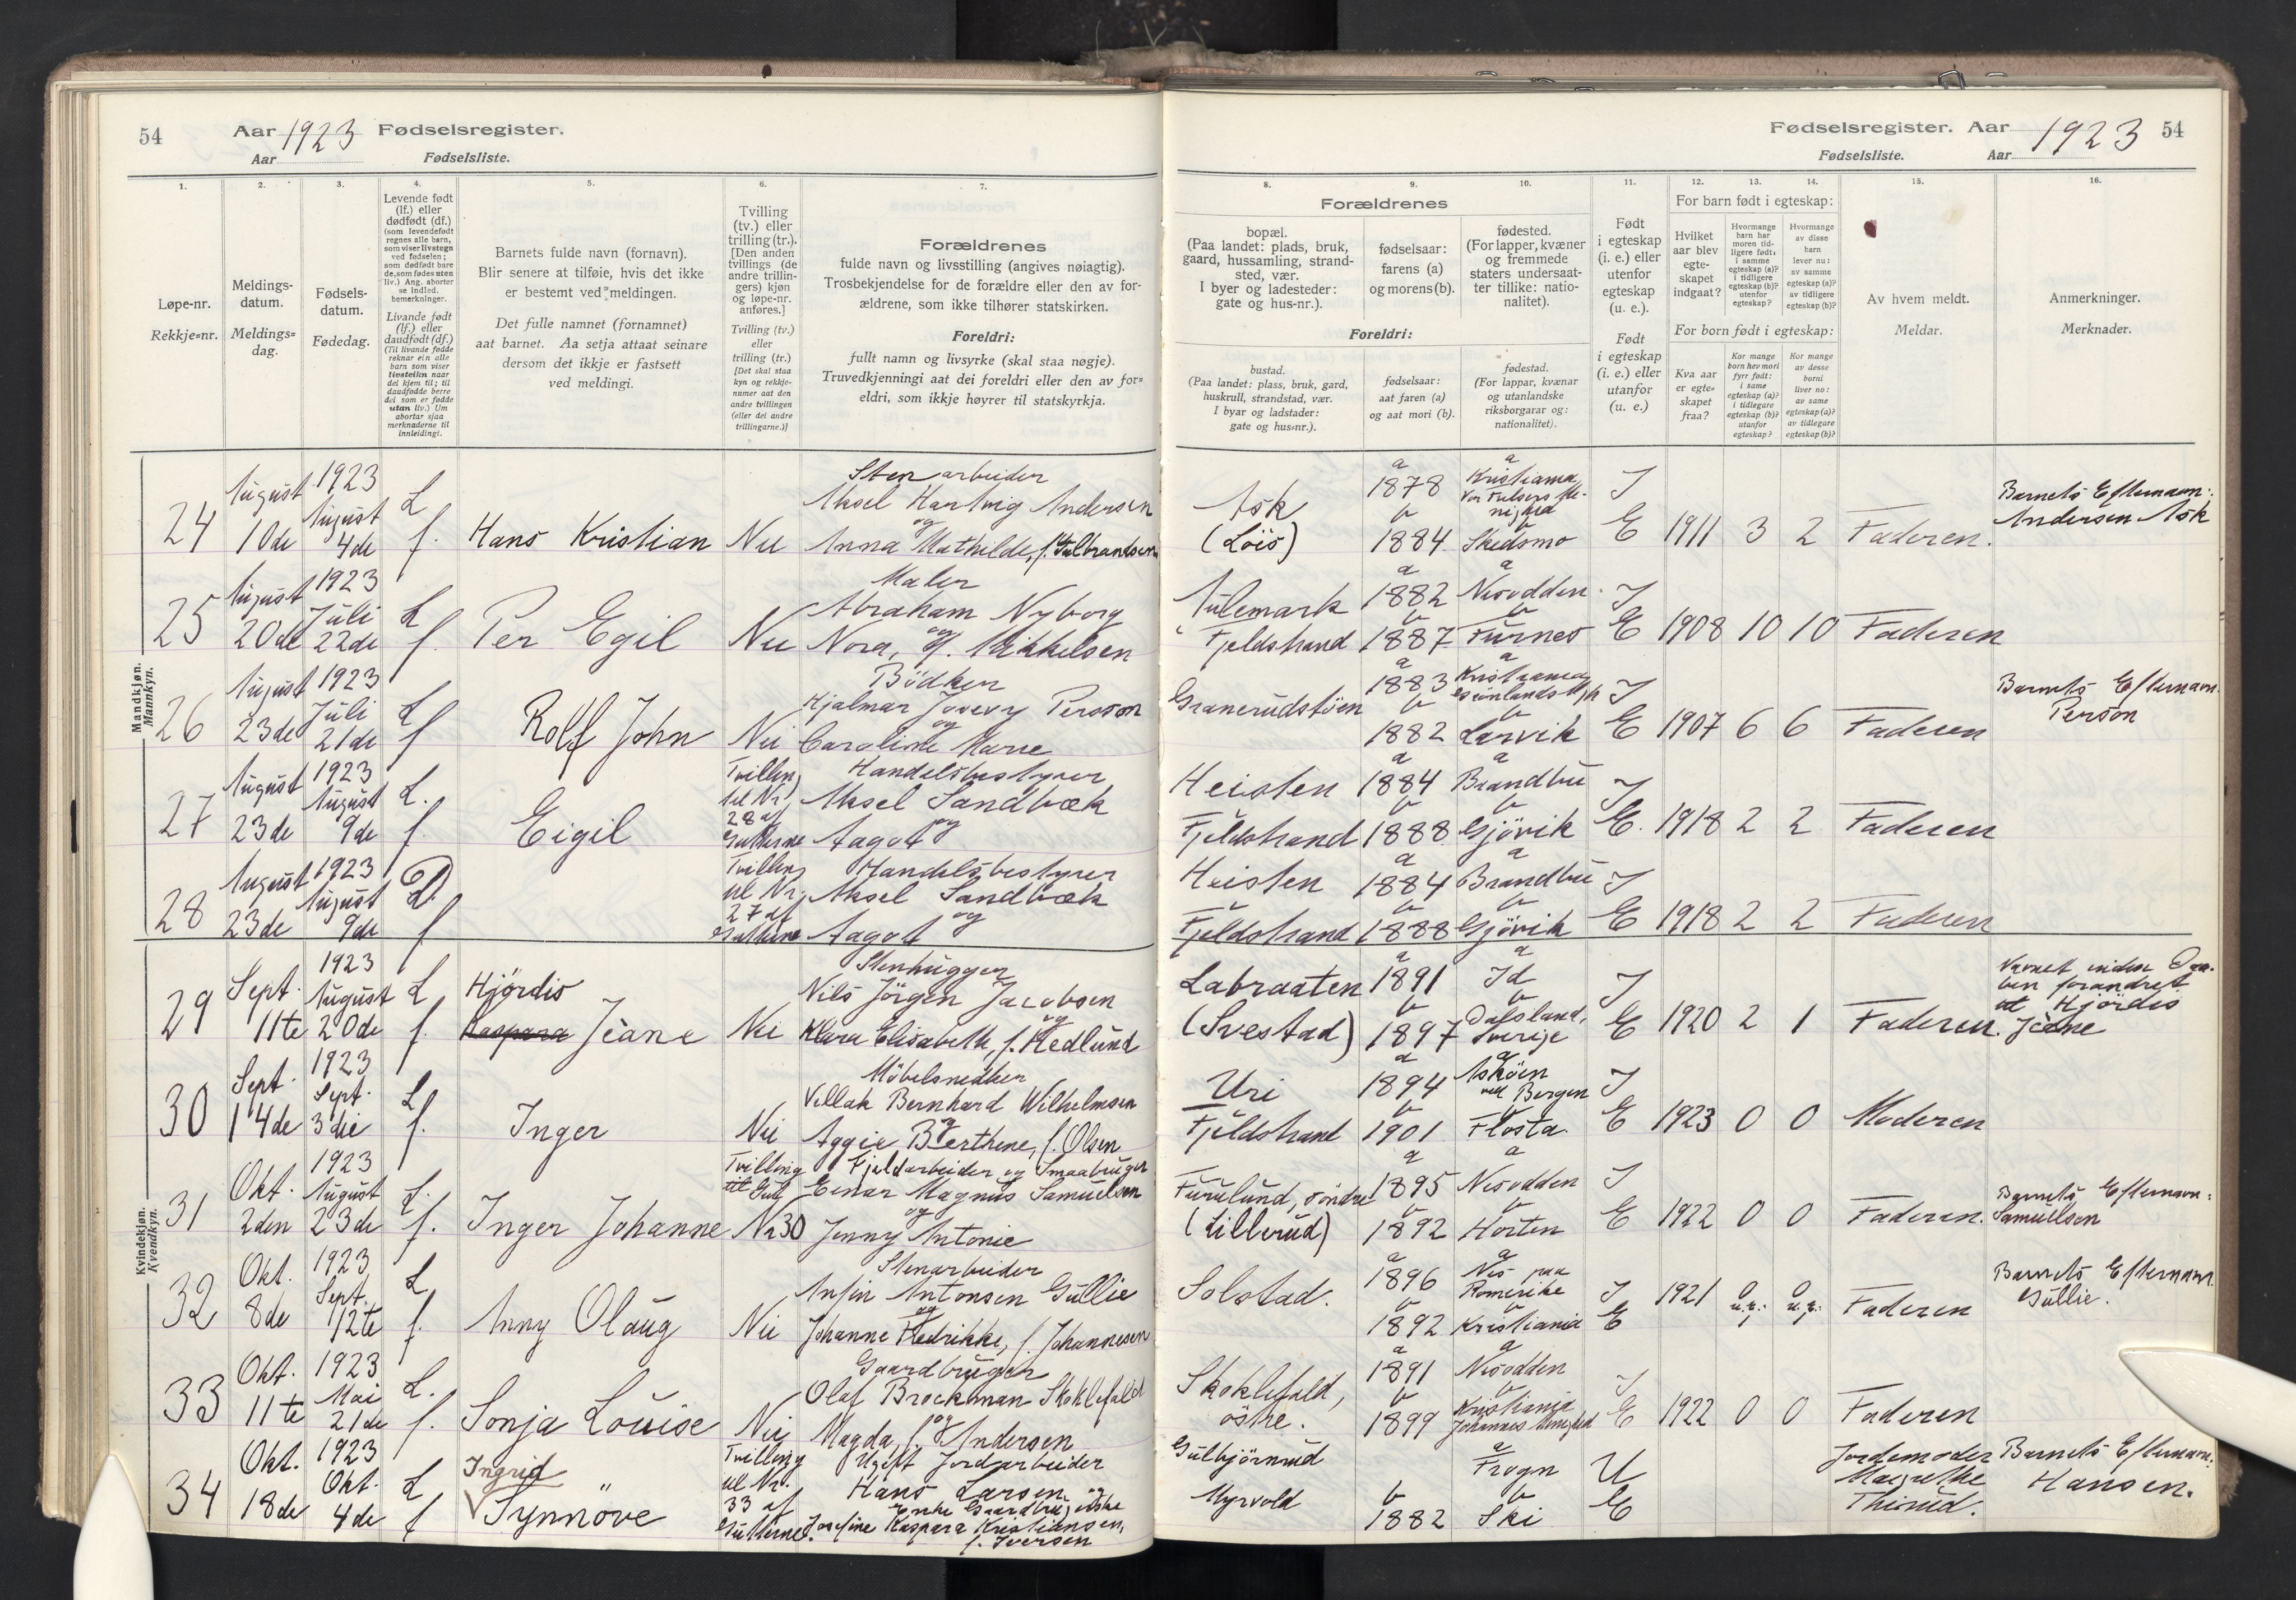 54 Aar 1923 Fødselsregister.
Aar Fødselsliste.
Fødselsregister. Aar 1923 54
Fødselsliste. Aar
1.
Løpe-nr.
Rekkje=nr.
2.
Meldings-
datum.
Meldings=
dag.
3.
Fødsels-
datum.
Fødedag.
4.
Levende født
(lf.) eller
dødfødt (df.)
(som levendefødt
regnes alle barn,
som viser livstegn
ved fødselen;
som dødfødt bare
de, som fødes uten
liv.) Ang. aborter
se indled.
bemerkninger.
Livande født
(lf.) eller
daudfødt (df.)
(Til livande fødde
reknar ein alle
barn som viser
livsteikn naar
dei kjem til; til
daudfødde berre
dei som er fødde
utan liv.) Um
abortar sjaa
merknaderne til
innleidingi.
5.
Barnets fulde navn (fornavn).
Blir senere at tilføie, hvis det ikke
er bestemt ved meldingen.
Det fulle namnet (fornamnet)
aat barnet. Aa setja attaat seinare
dersom det ikkje er fastsett
ved meldingi.
6.
Tvilling
(tv.) eller
trilling (tr.).
[Den anden
tvillings (de
andre trillin-
gers) kjøn
og løpe-nr.
anføres.]
Tvilling (tv.)
eller
trilling (tr.)
[Det skal staa
kyn og rekkje-
numer aat den
andre tvillingen
(eller dei andre
trillingarne.)]
7.
Forældrenes
fulde navn og livsstilling (angives nøiagtig).
Trosbekjendelse for de forældre eller den av for-
ældrene, som ikke tilhører statskirken.
Foreldri:
fullt namn og livsyrke (skal staa nøgje).
Truvedkjenningi aat dei foreldri eller den av for=
eldri, som ikkje høyrer til statskyrkja.
Forældrenes
8.
bopæl.
(Paa landet: plads, bruk,
gaard, hussamling, strand-
sted, vær.
I byer og ladesteder:
gate og hus-nr.).
9.
fødselsaar:
farens (a)
og morens (b).
10.
fødested.
(For lapper, kvæner
og fremmede
staters undersaat-
ter tillike: natio-
nalitet).
Foreldri:
bustad.
(Paa landet: plass, bruk, gard,
huskrull, strandstad, vær.
I byar og ladstader:
gate og hus=nr.).
fødselsaar:
aat faren (a)
og aat mori (b).
fødestad.
(For lappar, kvænar
og utanlandske
riksborgarar og:
nationalitet).
11.
Født
i egteskap
(i. e.) eller
utenfor
egteskap
(u. e.).
Født
i egteskap
(i. e.) eller
utanfor
(u. e.)
12. 13. 14.
For barn født i egteskap:
Hvilket
aar blev
egte-
skapet
indgaat?
Hvormange
barn har
moren tid-
ligere født:
i samme
egteskap (a)?
i tidligere
egteskap (b)?
utenfor
egteskap?
Hvormange
av disse
barn
lever nu:
av samme
egteskap (a)?
av tidligere
egteskap (b)?
For born født i egteskap:
Kva aar
er egte=
skapet
fraa?
Kor mange
born hev mori
fyrr født:
i same
egteskap (a)?
i tidlegare
egteskap (b)?
utanfor
egteskap?
Kor mange
av desse
borni
liver no:
av same
egteskap (a)?
av tidlegare
egteskap (b)?
15.
Av hvem meldt.
Meldar.
16.
Anmerkninger.
Merknader.
Mandkjøn.
Mannkyn.
24 August 10de 1923 August 4de L. f. Hans Kristian Nei
Stenarbeider
Aksel Hartvig Andersen
og
Anna Mathilde, f. Gulbrandsen
Ask
(Löis)
a 1878 b 1884
a Kristiania
Vor Frelsers Me-
nighed
b Skedsmo
I E 1911 3 2 Faderen.
Barnets Efternavn:
Andersen Ask
25 August 20de 1923 Juli 22de L f. Per Egil Nei
Maler
Abraham Nyborg
og
Nora, f. Mikkelsen
Fjeldstrand
a 1882 b 1887
a Nesodden
b Furnes
I E 1908 10 10 Faderen
26 August 23de 1923 Juli 21de L f Rolf John Nei
Bödker
Hjalmar Person
og
Caroline Marie
Granerudstöen
a 1883 b 1882
a Kristiania
b Larvik
I E 1907 6 6 Faderen
Barnets Efternavn
Person
27 August 23de 1923 August 9de L. f. Eigil
Tvilling
til Nr.
28 af
Guttene
Handelsbestyrer
Aksel Sandbæk
og
Aagot
Heisten
Fjeldstrand
a 1884 b 1888
a Brandbu
b Gjövik
I E. 1918 2 2 Faderen
28 August 23de 1923 August 9de D. f
Tvilling
til Nr.
27 af
Guttene
Handelsbestyrer
Aksel Sandbæk
og
Aagot
Heisten
Fjeldstrand
a 1884 b 1888
a Brandbu
b Gjövik
I E 1918 2 2 Faderen
Kvindekjøn.
Kvendkyn.
29 Sept. 11te 1923 August 20de L f.
Hjördis
Kaspara Jeane Nei
Stenhugger
Nils Jörgen Jacobsen
og
Klara Elisabeth, f. Hedlund
Labraaten
(Svestad)
a 1891 b 1897
a Id
b Dalsland,
Sverige
I E 1920 2 1 Faderen.
Navnet inden Daa-
ben forandret
til Hjördis
Jeane
30 Sept. 14de 1923 Sept. 3die L f. Inger Nei
Möbelsnedker
Villak Bernhard Wilhelmsen
og
Aggie Berthine, f. Olsen
Uri
Fjeldstrand
a 1894 b 1901
a Asköen
ved Bergen
b Flosta
I E 1923 0 0 Moderen
31 Okt. 2den 1923 August 23de L. f. Inger Johanne
Tvilling
til Gut
Nr 30
Fjeldarbeider og Smaabruger
Einar Magnus Samuelsen
og
Jenny Antonie
Furulund, söndre
(Lillerud)
a 1895 b 1892
a Nesodden
b Horten
I E 1922 0 0 Faderen.
Barnets Efternavn:
Samuelsen
32 Okt. 8de 1923 Sept. 12te L f. Anny Olaug Nei
Stenarbeider
Anfin Antonsen Gullie
og
Johanne Fredrikke, f. Johannesen
Solstad.
a 1896 b 1892
a Nes paa
Romerike
b Kristiania
I E 1921 0 0 Faderen
Barnets Efternavn
Gullie.
33 Okt. 11te 1923 Mai 21de L. f. Sonja Louise Nei
Gaardbruger
Olaf Brockman Skoklefald
og
Magda, f. Andersen
Skoklefald,
östre.
a 1891 b 1899
a Nesodden
b Kristiania
Johannes Menighed
I E 1922 0 0 Faderen
34 Okt. 18de 1923 Okt. 4de L f
Ingrid
Synnöve
Tvilling
til Nr.
33 af
Guttene.
Ugift Jordarbeider
Hans Larsen og
Enke Gaardbrugerske
Josefine Kaspara Kristiansen,
f. Iversen
Gulbjörnrud
Myrvold
b 1882
a Frogn
b Ski
U E
Jordemoder
Magrethe
Thirud.
Barnets Efternavn:
Hansen.